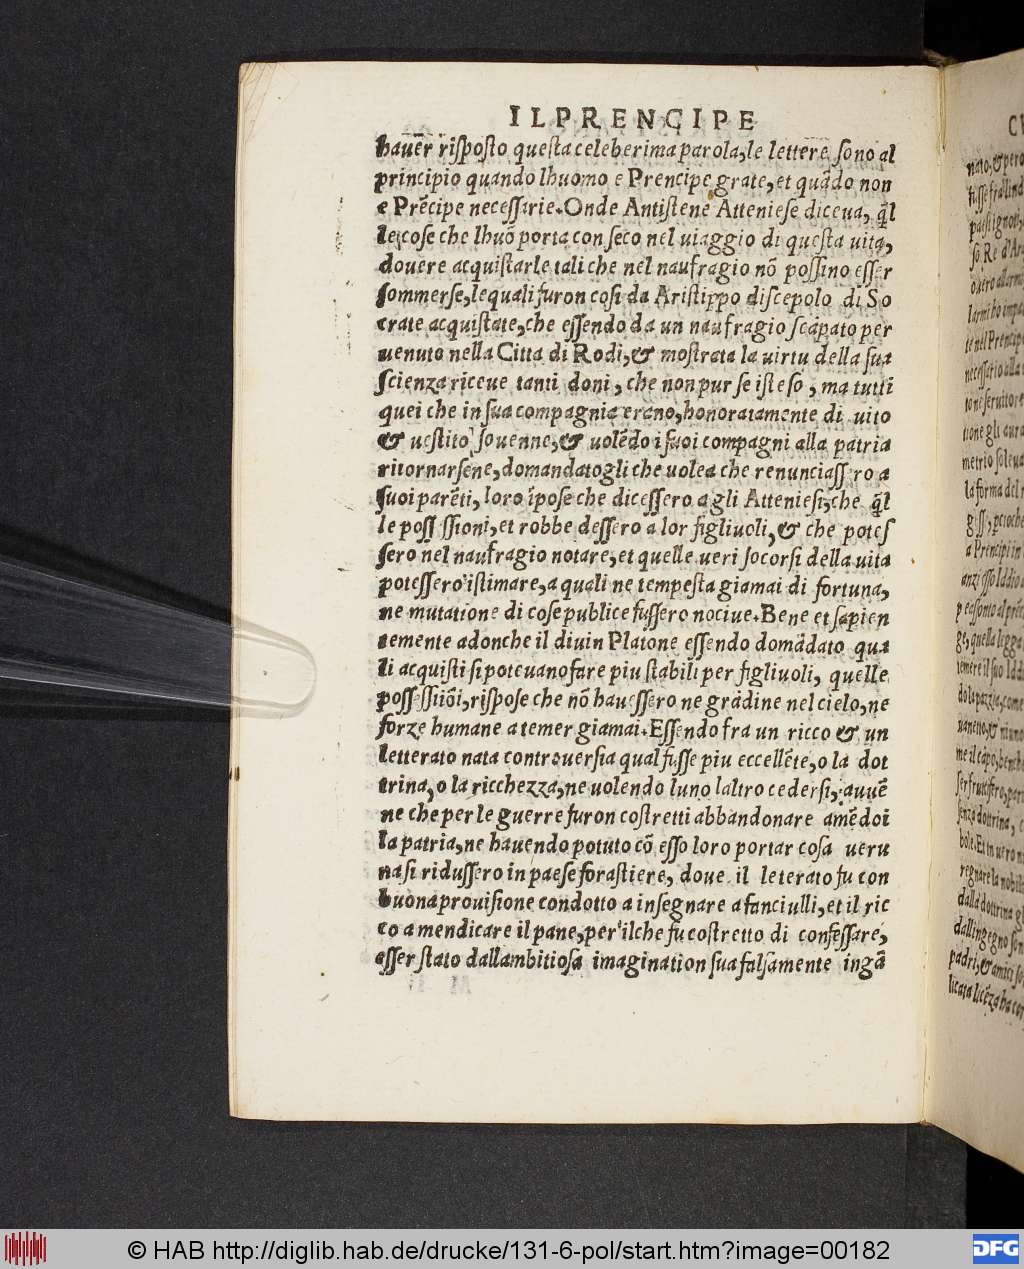 IL PRENCIPE
hauer risposto questa celeberima parola, le lettere sono al
principio quando lhuomo e Prencipe grate, et quãdo non
e Prẽcipe necessarie. Onde Antistene Atteniese diceua, q̃l
le cose che lhuõ porta con seco nel uiaggio di questa uita,
douere acquistarle tali che nel naufragio nõ possino esser
sommerse, le quali furon cosi da Aristippo discepolo di So
crate acquistate, che essendo da un naufragio scapato per
uenuto nella Citta di Rodi, & mostrata la uirtu della sua
scienza riceue tanti doni, che non pur se isteso, ma tutti
quei che in sua compagnia erano, honoratamente di uito
& uestito souenne, & uolẽdo i suoi compagni alla patria
ritornarsene, domandatogli che uolea che renunciass ro a
suoi parẽti, loro ĩpose che dicessero a gli Atteniesi, che q̃l
le poss ssioni, et robbe dessero a lor figliuoli, & che potes
sero nel naufragio notare, et quelle ueri socorsi della uita
potessero istimare, a quali ne tempesta giamai di fortuna,
ne mutatione di cose publice fussero nociue. Bene et sapien
temente adonche il diuin Platone essendo domãdato qua
li acquisti si poteuano fare piu stabili per figliuoli, quelle
possessiiõi, rispose che nõ hauessero ne grãdine nel cielo, ne
forze humane a temer giamai. Essendo fra un ricco & un
letterato nata controuersia qual fusse piu eccellẽte, o la dot
trina, o la ricchezza, ne uolendo luno laltro cedersi, auuẽ
ne che per le guerre furon costretti abbandonare amẽdoi
la patria, ne hauendo potuto cõ esso loro portar cosa ueru
na si ridussero in paese forastiere, doue il leterato fu con
buona prouisione condotto a insegnare a fanciulli, et il ric
co a mendicare il pane, per ilche fu costretto di confessare,
esser stato dallambitiosa imagination sua falsamente ingã
© HAB http://diglib.hab.de/drucke/131-6-pol/start.htm?image=00182
DFG